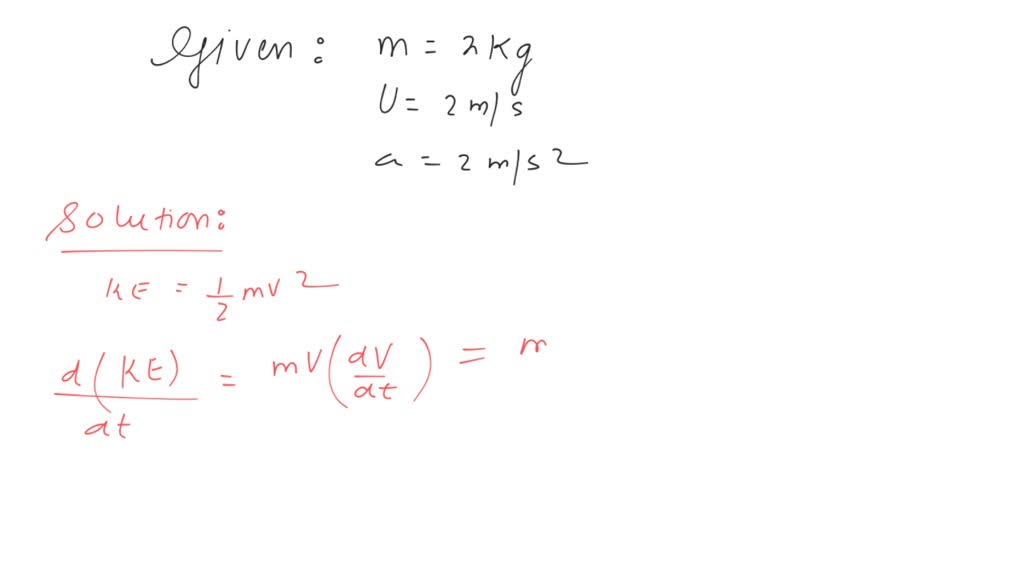 Given: m = 2 kg
U = 2 m/s
a = 2 m/s2
Solution:
KE = 1/2 mv2
d(KE)/dt = mV(dV/dt) = m